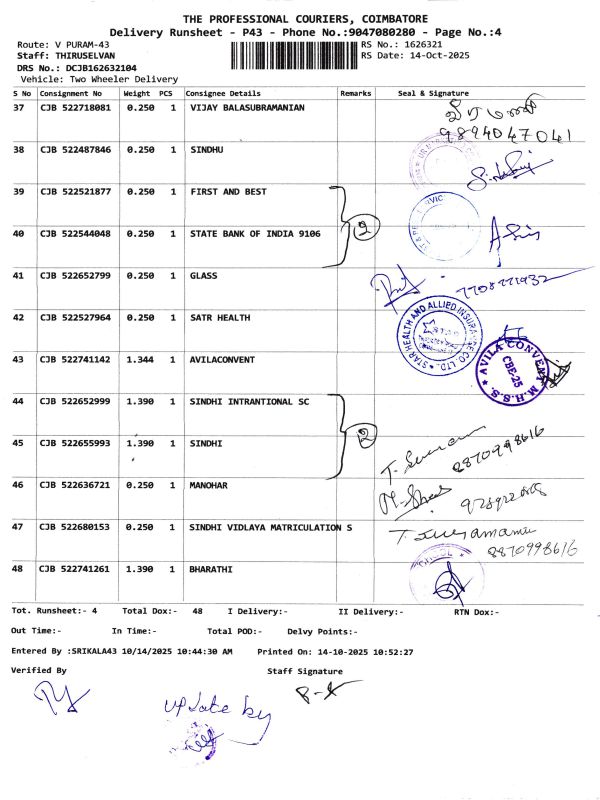 THE PROFESSIONAL COURIERS, COIMBATORE
Delivery Runsheet - P43 - Phone No.:9047080280 - Page No.:4
Route: V PURAM-43 RS No.: 1626321
Staff: THIRUSELVAN RS Date: 14-Oct-2025
DRS No.: DCJB162632104
Vehicle: Two Wheeler Delivery
S No Consignment No Weight PCS Consignee Details Remarks Seal & Signature
37 CJB 522718081 0.250 1 VIJAY BALASUBRAMANIAN
9894047041
38 CJB 522487846 0.250 1 SINDHU
39 CJB 522521877 0.250 1 FIRST AND BEST
2
40 CJB 522544048 0.250 1 STATE BANK OF INDIA 9106
41 CJB 522652799 0.250 1 GLASS
42 CJB 522527964 0.250 1 SATR HEALTH
STAR HEALTH AND ALLIED INSURANCE CO. LTD.
43 CJB 522741142 1.344 1 AVILACONVENT
AVILA CONVENT M.H.S.S.
CBE-25
44 CJB 522652999 1.390 1 SINDHI INTRANTIONAL SC
2
45 CJB 522655993 1.390 1 SINDHI
8870998616
46 CJB 522636721 0.250 1 MANOHAR
47 CJB 522680153 0.250 1 SINDHI VIDLAYA MATRICULATION S
8870998616
48 CJB 522741261 1.390 1 BHARATHI
Tot. Runsheet:- 4 Total Dox:- 48 I Delivery:- II Delivery:- RTN Dox:-
Out Time:- In Time:- Total POD:- Delvy Points:-
Entered By :SRIKALA43 10/14/2025 10:44:30 AM Printed On: 14-10-2025 10:52:27
Verified By Staff Signature
update by